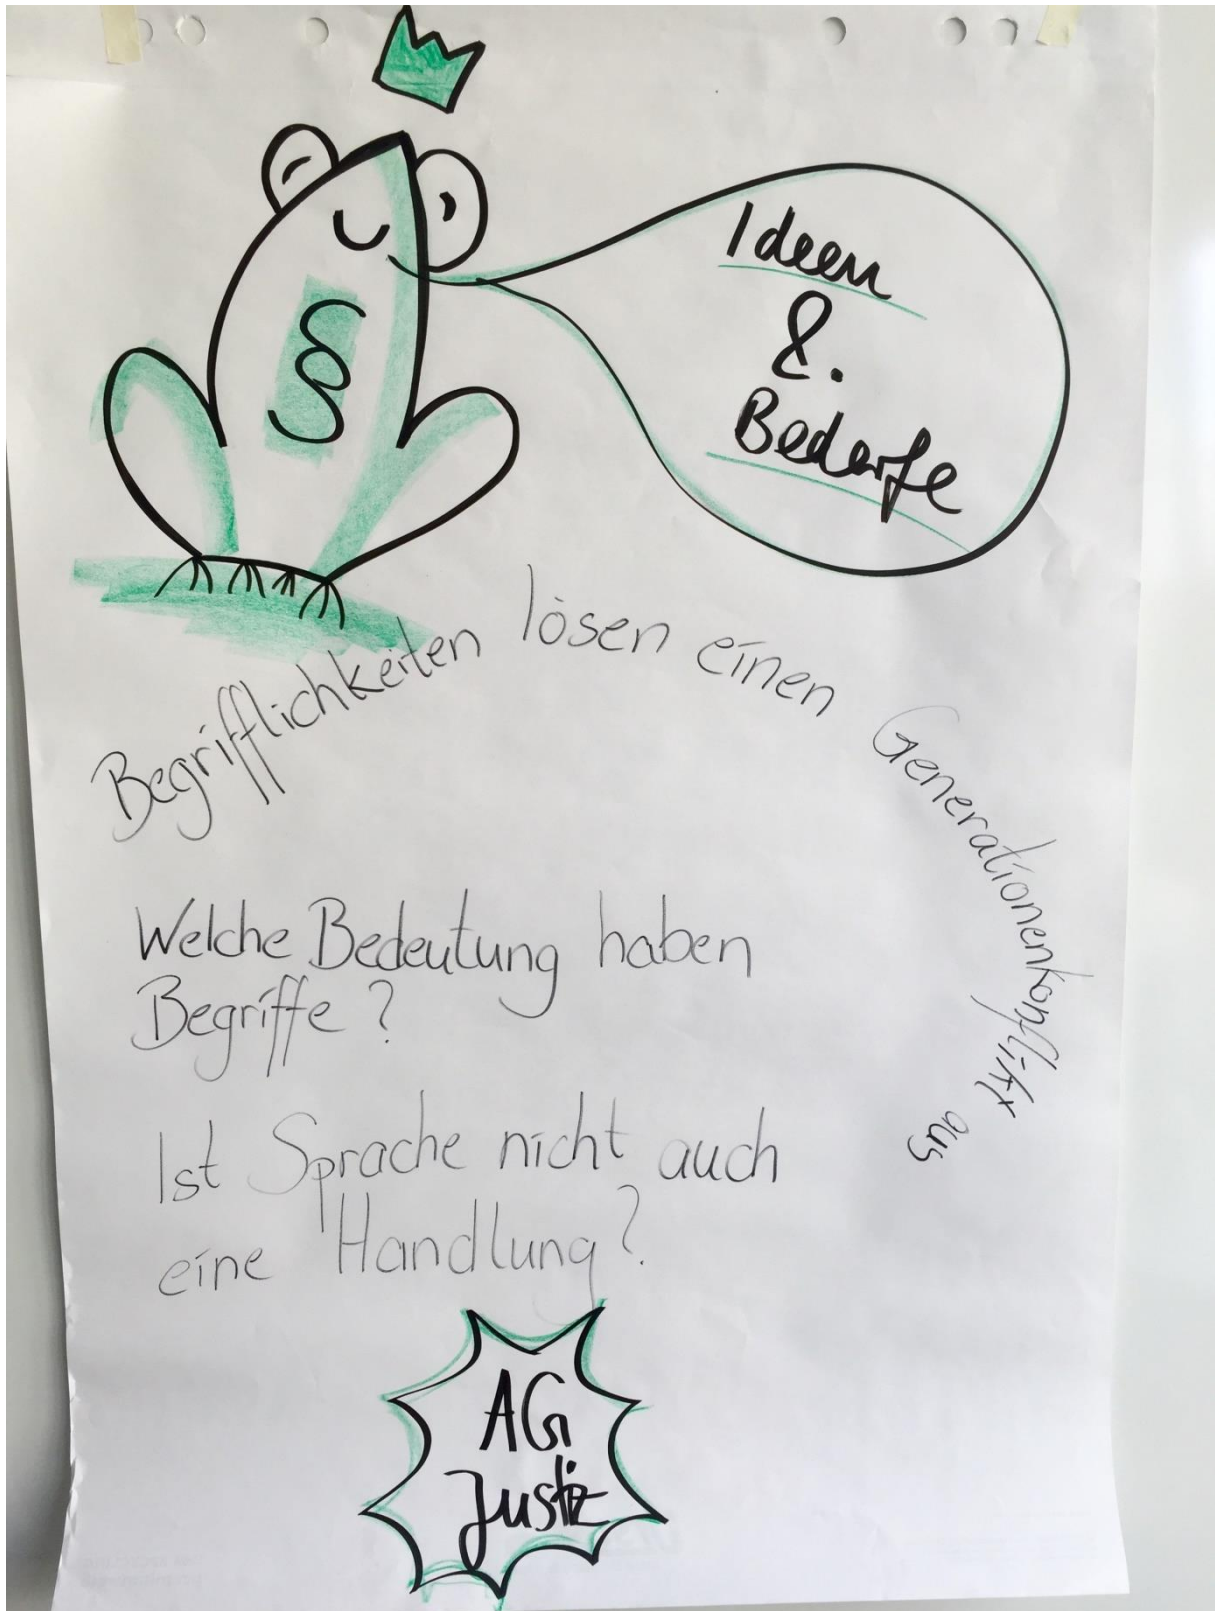 §
Ideen
&.
Bedarfe
Begrifflichkeiten lösen einen Generationenkonflikt aus
Welche Bedeutung haben
Begriffe?
Ist Sprache nicht auch
eine Handlung?
AG
Justiz